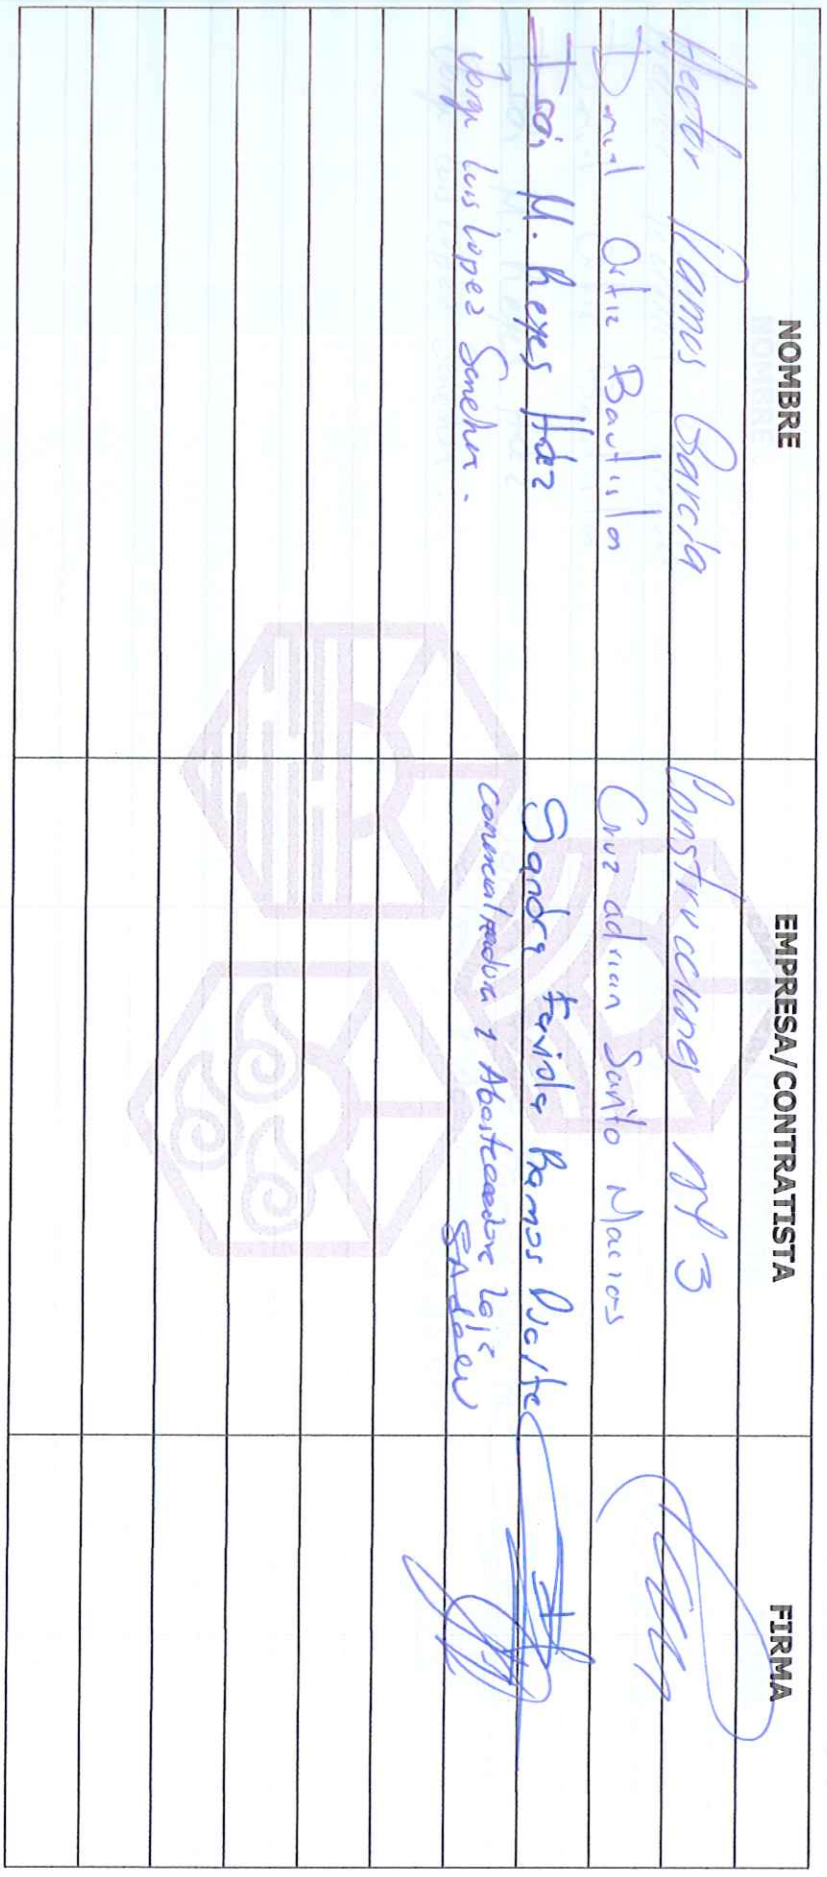 NOMBRE EMPRESA/CONTRATISTA FIRMA
Hector Ramos Garcia Construcciones
David Ortiz Bautista Cruz adrian Santo Macias
M. Reyes Hdez Sandra Faviola Ramos Duarte
Jorge Luis Lopez Comercializadora y Abastecedora
SA de cv